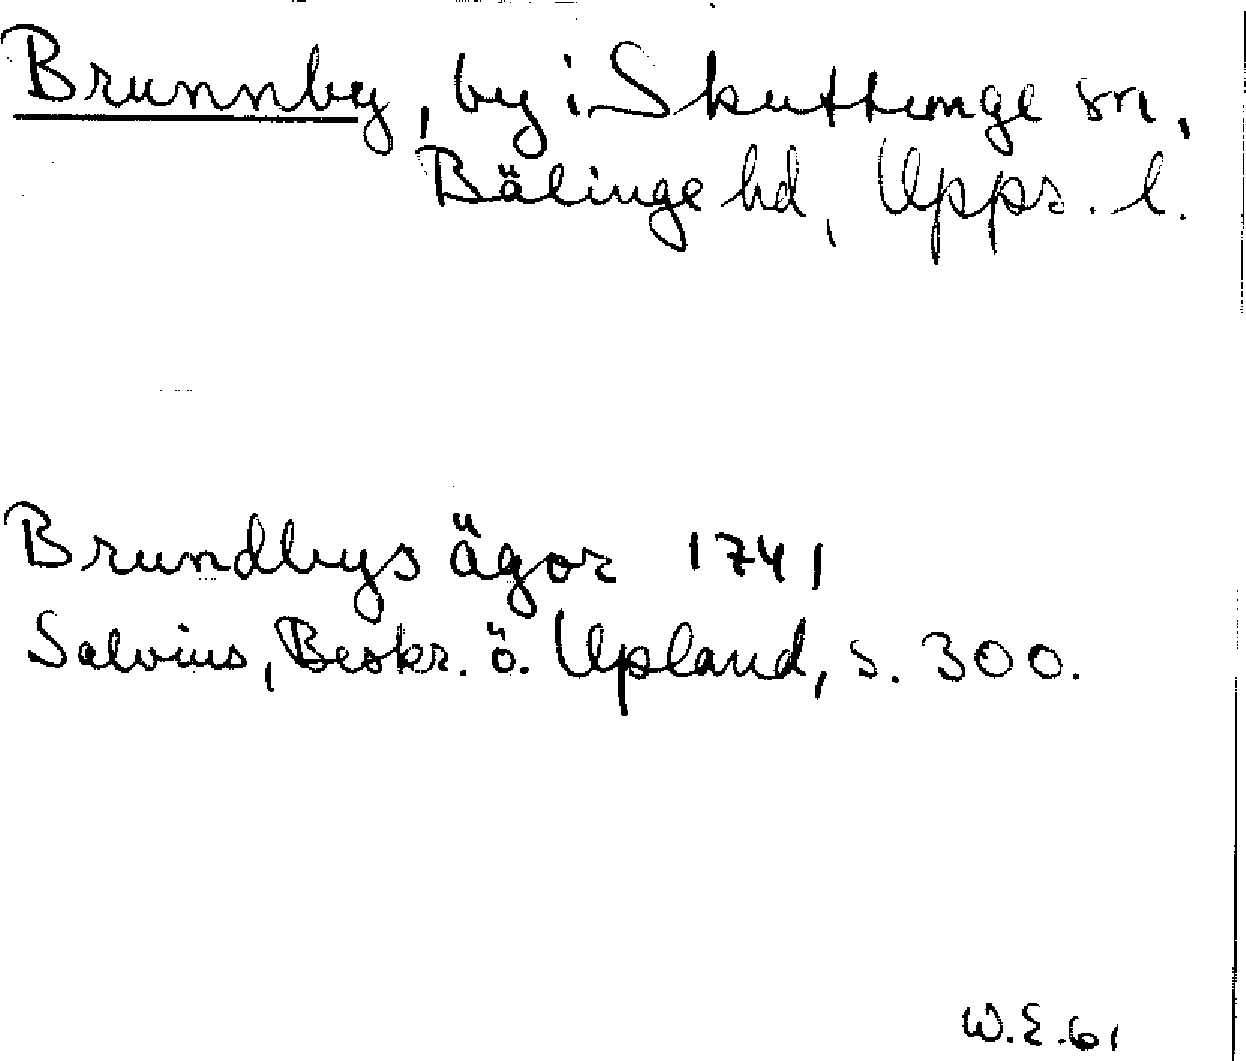 Brunnby, by i Skuttunge sn,
Bälinge hd, Upps. l.
Brundbys ägor 1741
Salvius, Beskr. ö. Upland, s. 300.
W.E.61